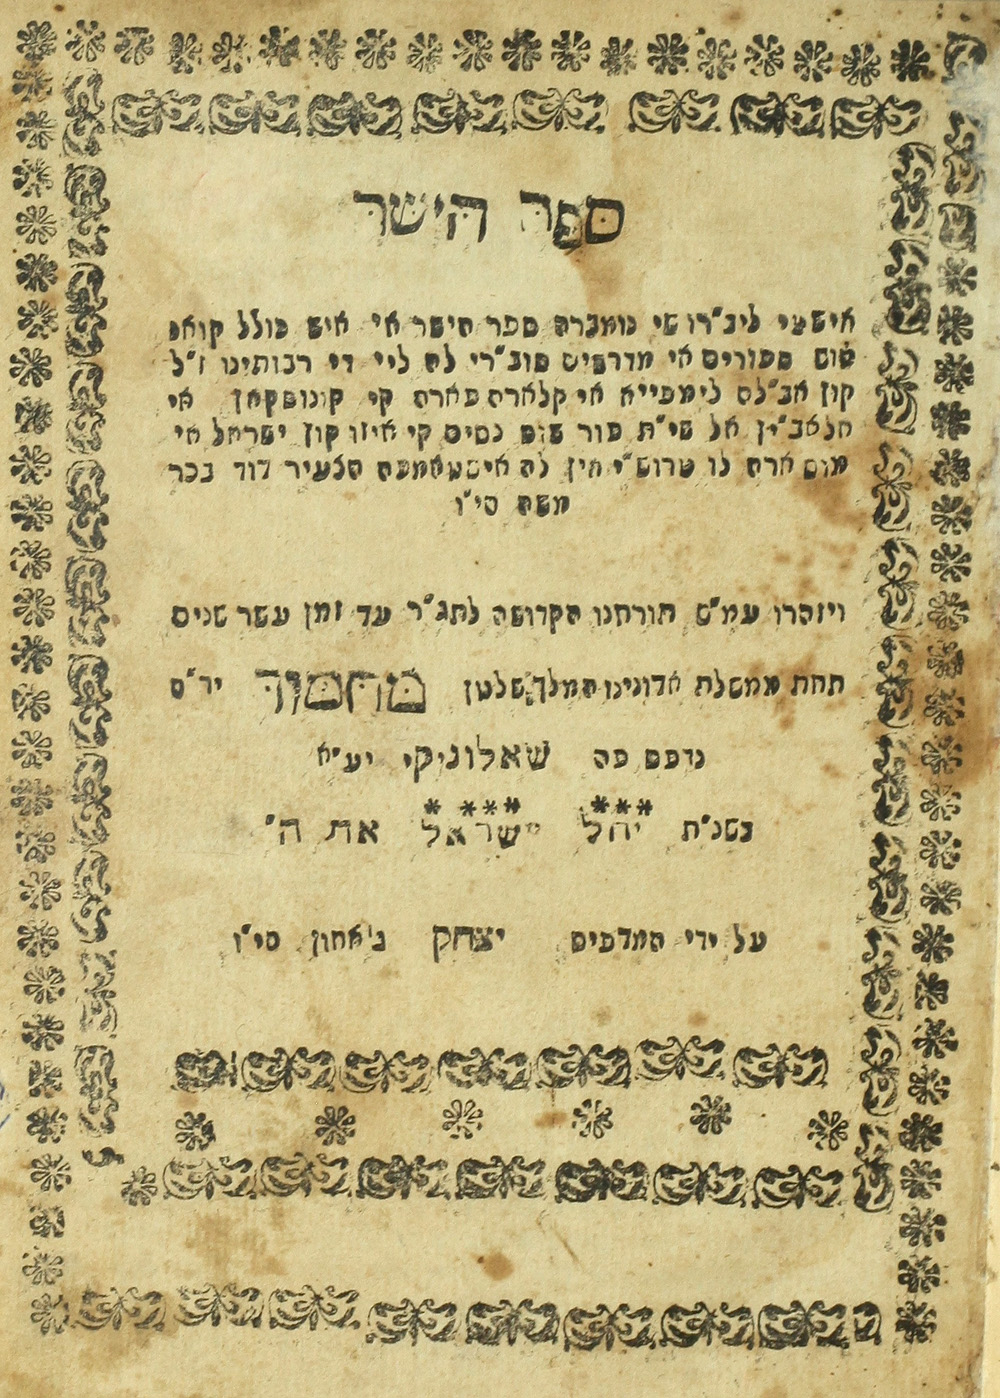 ספר הישר
איסטי ליב״רו סי נומברה ספר הישר אי איס כולל קואנ
טוס ספורים אי מדרסים סוב״רי לה ליי די רבותינו ז״ל
קון אב״לה לימפייא אי קלארה פארה קי קונוסקאן אי
אלאב״ין אל שי״ת פור סוס נסים קי איזו קון ישראל אי
מוס ארה לו טרוש״י אין לה איסטאמפה הצעיר דוד בכר
משה סי״ו
ויזהרו עמ״ש תורתנו הקדושה לתג״ר עד זמן עשר שנים
תחת ממשלת אדונינו המלך שלטן מחמוד יר״ה
נדפס פה שאלוניקי יע״א
בשנ״ת יחל ישראל את ה׳
על ידי המדפיס יצחק ג׳אהון סי״ו